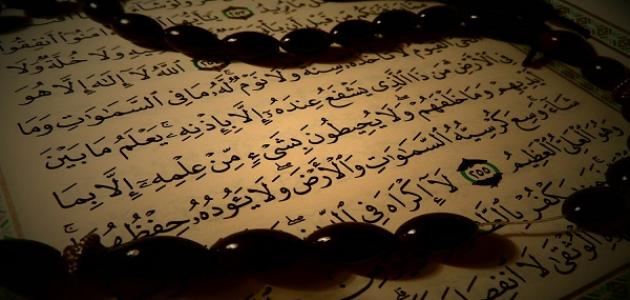 ءَامَنُوٓا۟ أَنفِقُوا۟
وَلَا خُلَّةٌ وَلَا
٢٥٤ ٱللَّهُ لَآ إِلَٰهَ إِلَّا هُوَ
ٱلْقَيُّومُ لَا تَأْخُذُهُۥ سِنَةٌ وَلَا نَوْمٌ لَّهُۥ مَا فِى ٱلسَّمَٰوَٰتِ وَمَا
فِى ٱلْأَرْضِ مَن ذَا ٱلَّذِى يَشْفَعُ عِندَهُۥٓ إِلَّا بِإِذْنِهِۦ يَعْلَمُ مَا بَيْنَ
أَيْدِيهِمْ وَمَا خَلْفَهُمْ وَلَا يُحِيطُونَ بِشَىْءٍ مِّنْ عِلْمِهِۦٓ إِلَّا بِمَا
شَآءَ وَسِعَ كُرْسِيُّهُ ٱلسَّمَٰوَٰتِ وَٱلْأَرْضَ وَلَا يَـُٔودُهُۥ حِفْظُهُمَا
وَهُوَ ٱلْعَلِىُّ ٱلْعَظِيمُ ٢٥٥ لَآ إِكْرَاهَ فِى ٱلدِّينِ
يَكْفُرْ
ٱلْوُثْقَىٰ لَا ٱنفِصَامَ